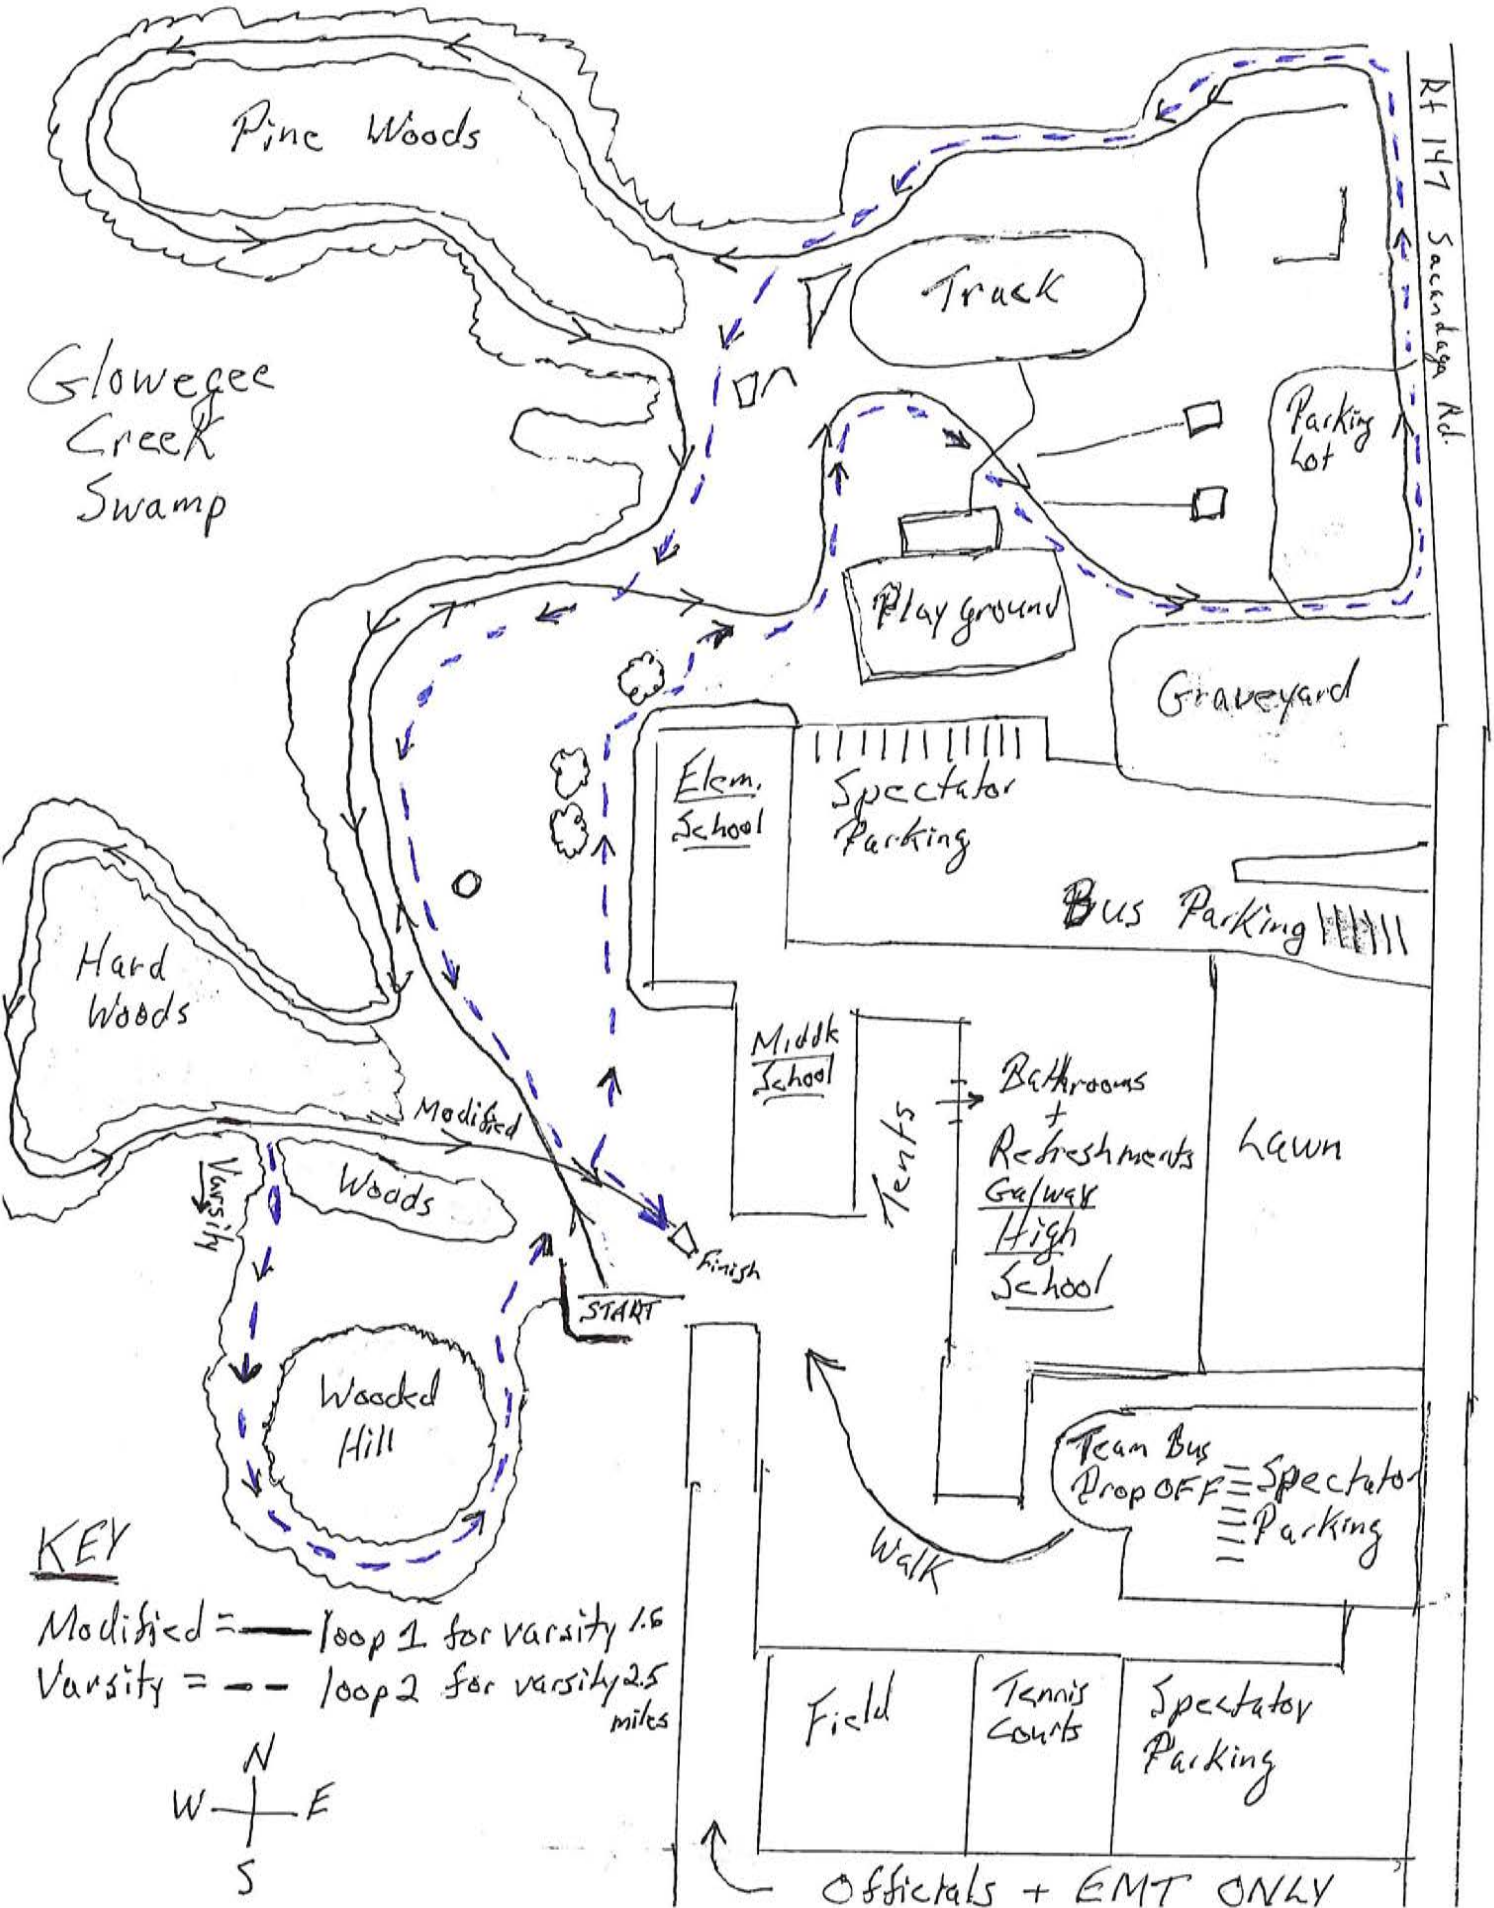 Pine Woods
Rt 147 Sacandaga Rd.
Track
Glowegee
Creek
Swamp
Parking
Lot
Playground
Graveyard
Elem.
School
Spectator
Parking
Bus Parking
Hard
Woods
Middle
School
Tents
Bathrooms
+
Refreshments
Galway
High
School
Lawn
Modified
Varsity
Woods
Finish
START
Wooded
Hill
Team Bus
Drop OFF
Spectator
Parking
Walk
KEY
Modified = loop 1 for varsity 1.6
Varsity = loop 2 for varsity 2.5
miles
Field
Tennis
Courts
Spectator
Parking
N
W E
S
Officials + EMT ONLY